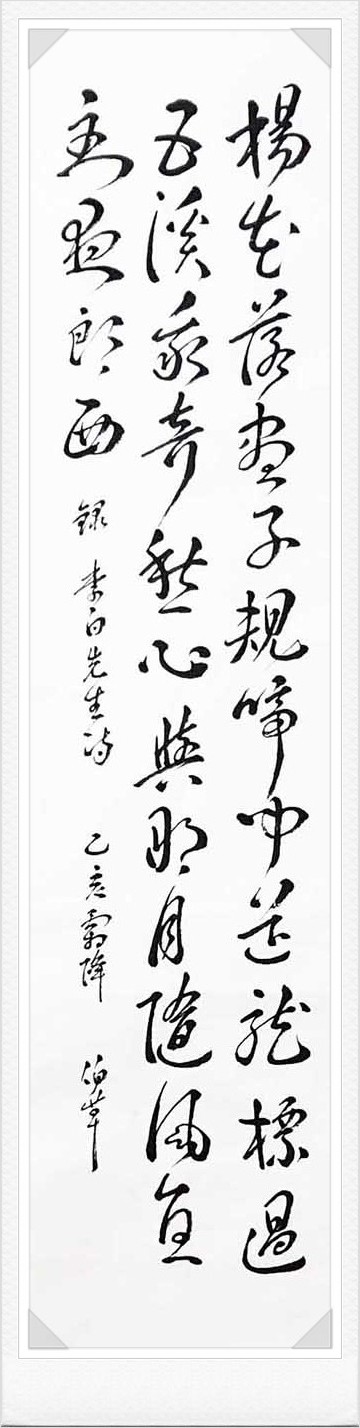 楊花落盡子規啼聞道龍標過
五溪我寄愁心與明月隨風直
到夜郎西 錄李白先生詩 乙亥霜降 伯華